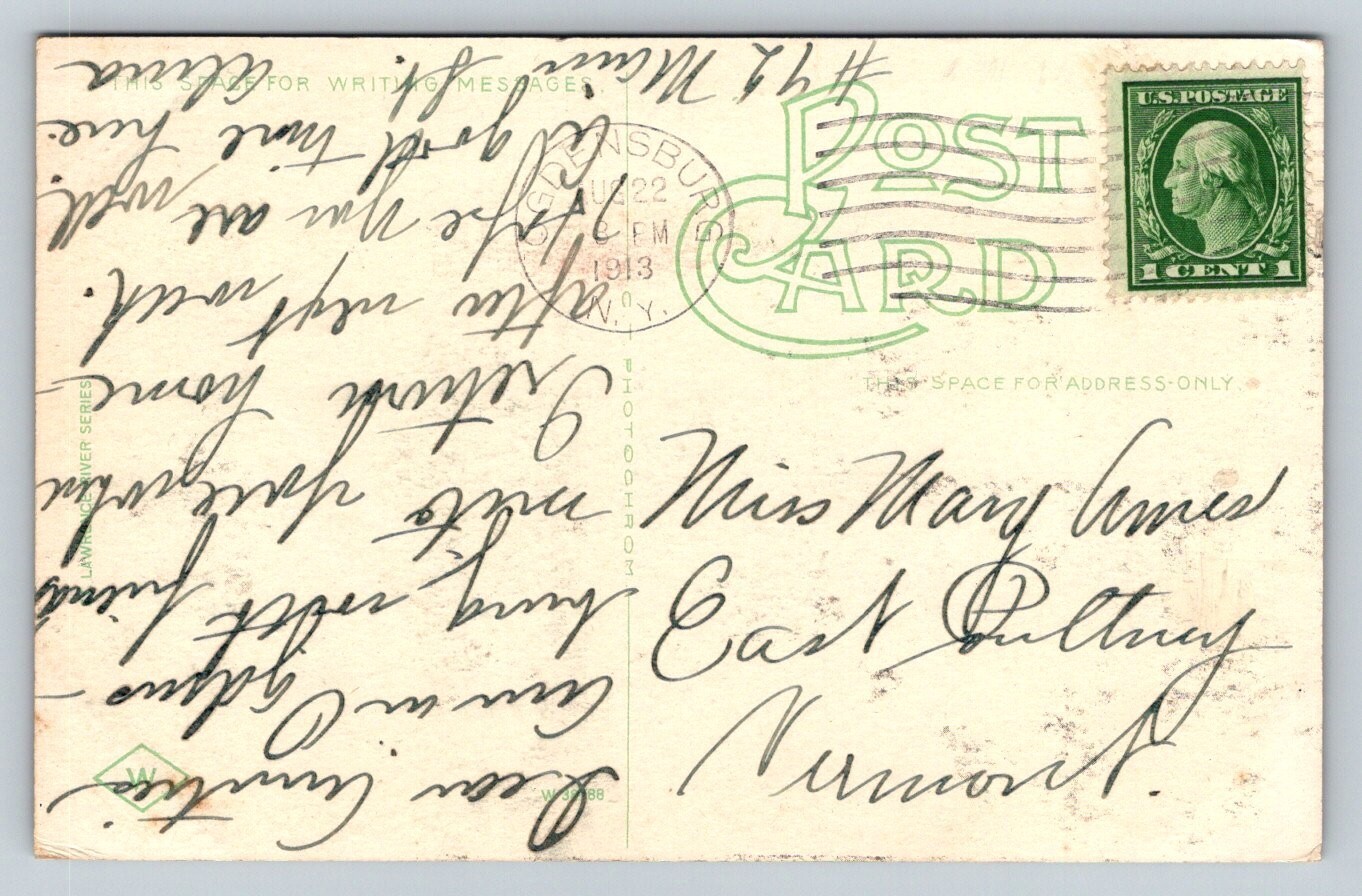 THIS SPACE FOR WRITING MESSAGES.
POST
CARD
THIS SPACE FOR ADDRESS ONLY.
U.S. POSTAGE
1 CENT 1
OGDENSBURG
AUG 22
8 PM
1913
N.Y.
Miss Mary Ames
East Poultney
Vermont.
Dear Aunties
Am in Ogdens-
burg with friends
when
I return home
after next week.
Hope you are well.
good time here.
Main St. Alma
LAWRENCE RIVER SERIES
PHOTOCHROM
W